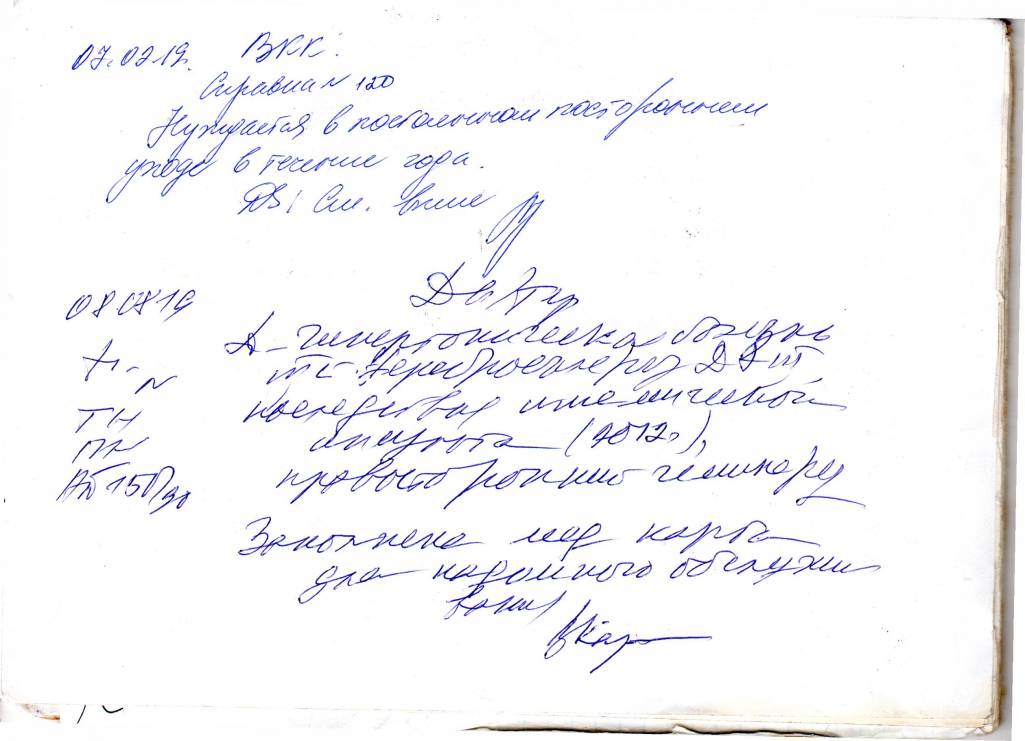 07.02.19. ВКК.
Справка № 120
Нуждается в постоянном постороннем
уходе в течение года.
DS: См. выше
08 08 19
Д-гипертоническая болезнь
III ст. Цереброваскуляр
N
последствия ишемической
инсульта (2012г),
правосторонний гемипарез
АД 150/90
Заполнена мед карта
для надомного обслужи
вания